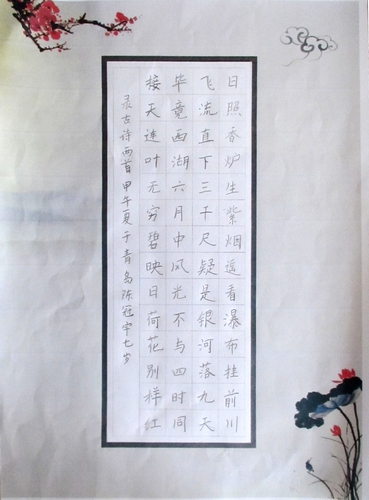 日照香炉生紫烟遥看瀑布挂前川
飞流直下三千尺疑是银河落九天
毕竟西湖六月中风光不与四时同
接天连叶无穷碧映日荷花别样红
录古诗两首甲午夏于青岛陈冠宇七岁